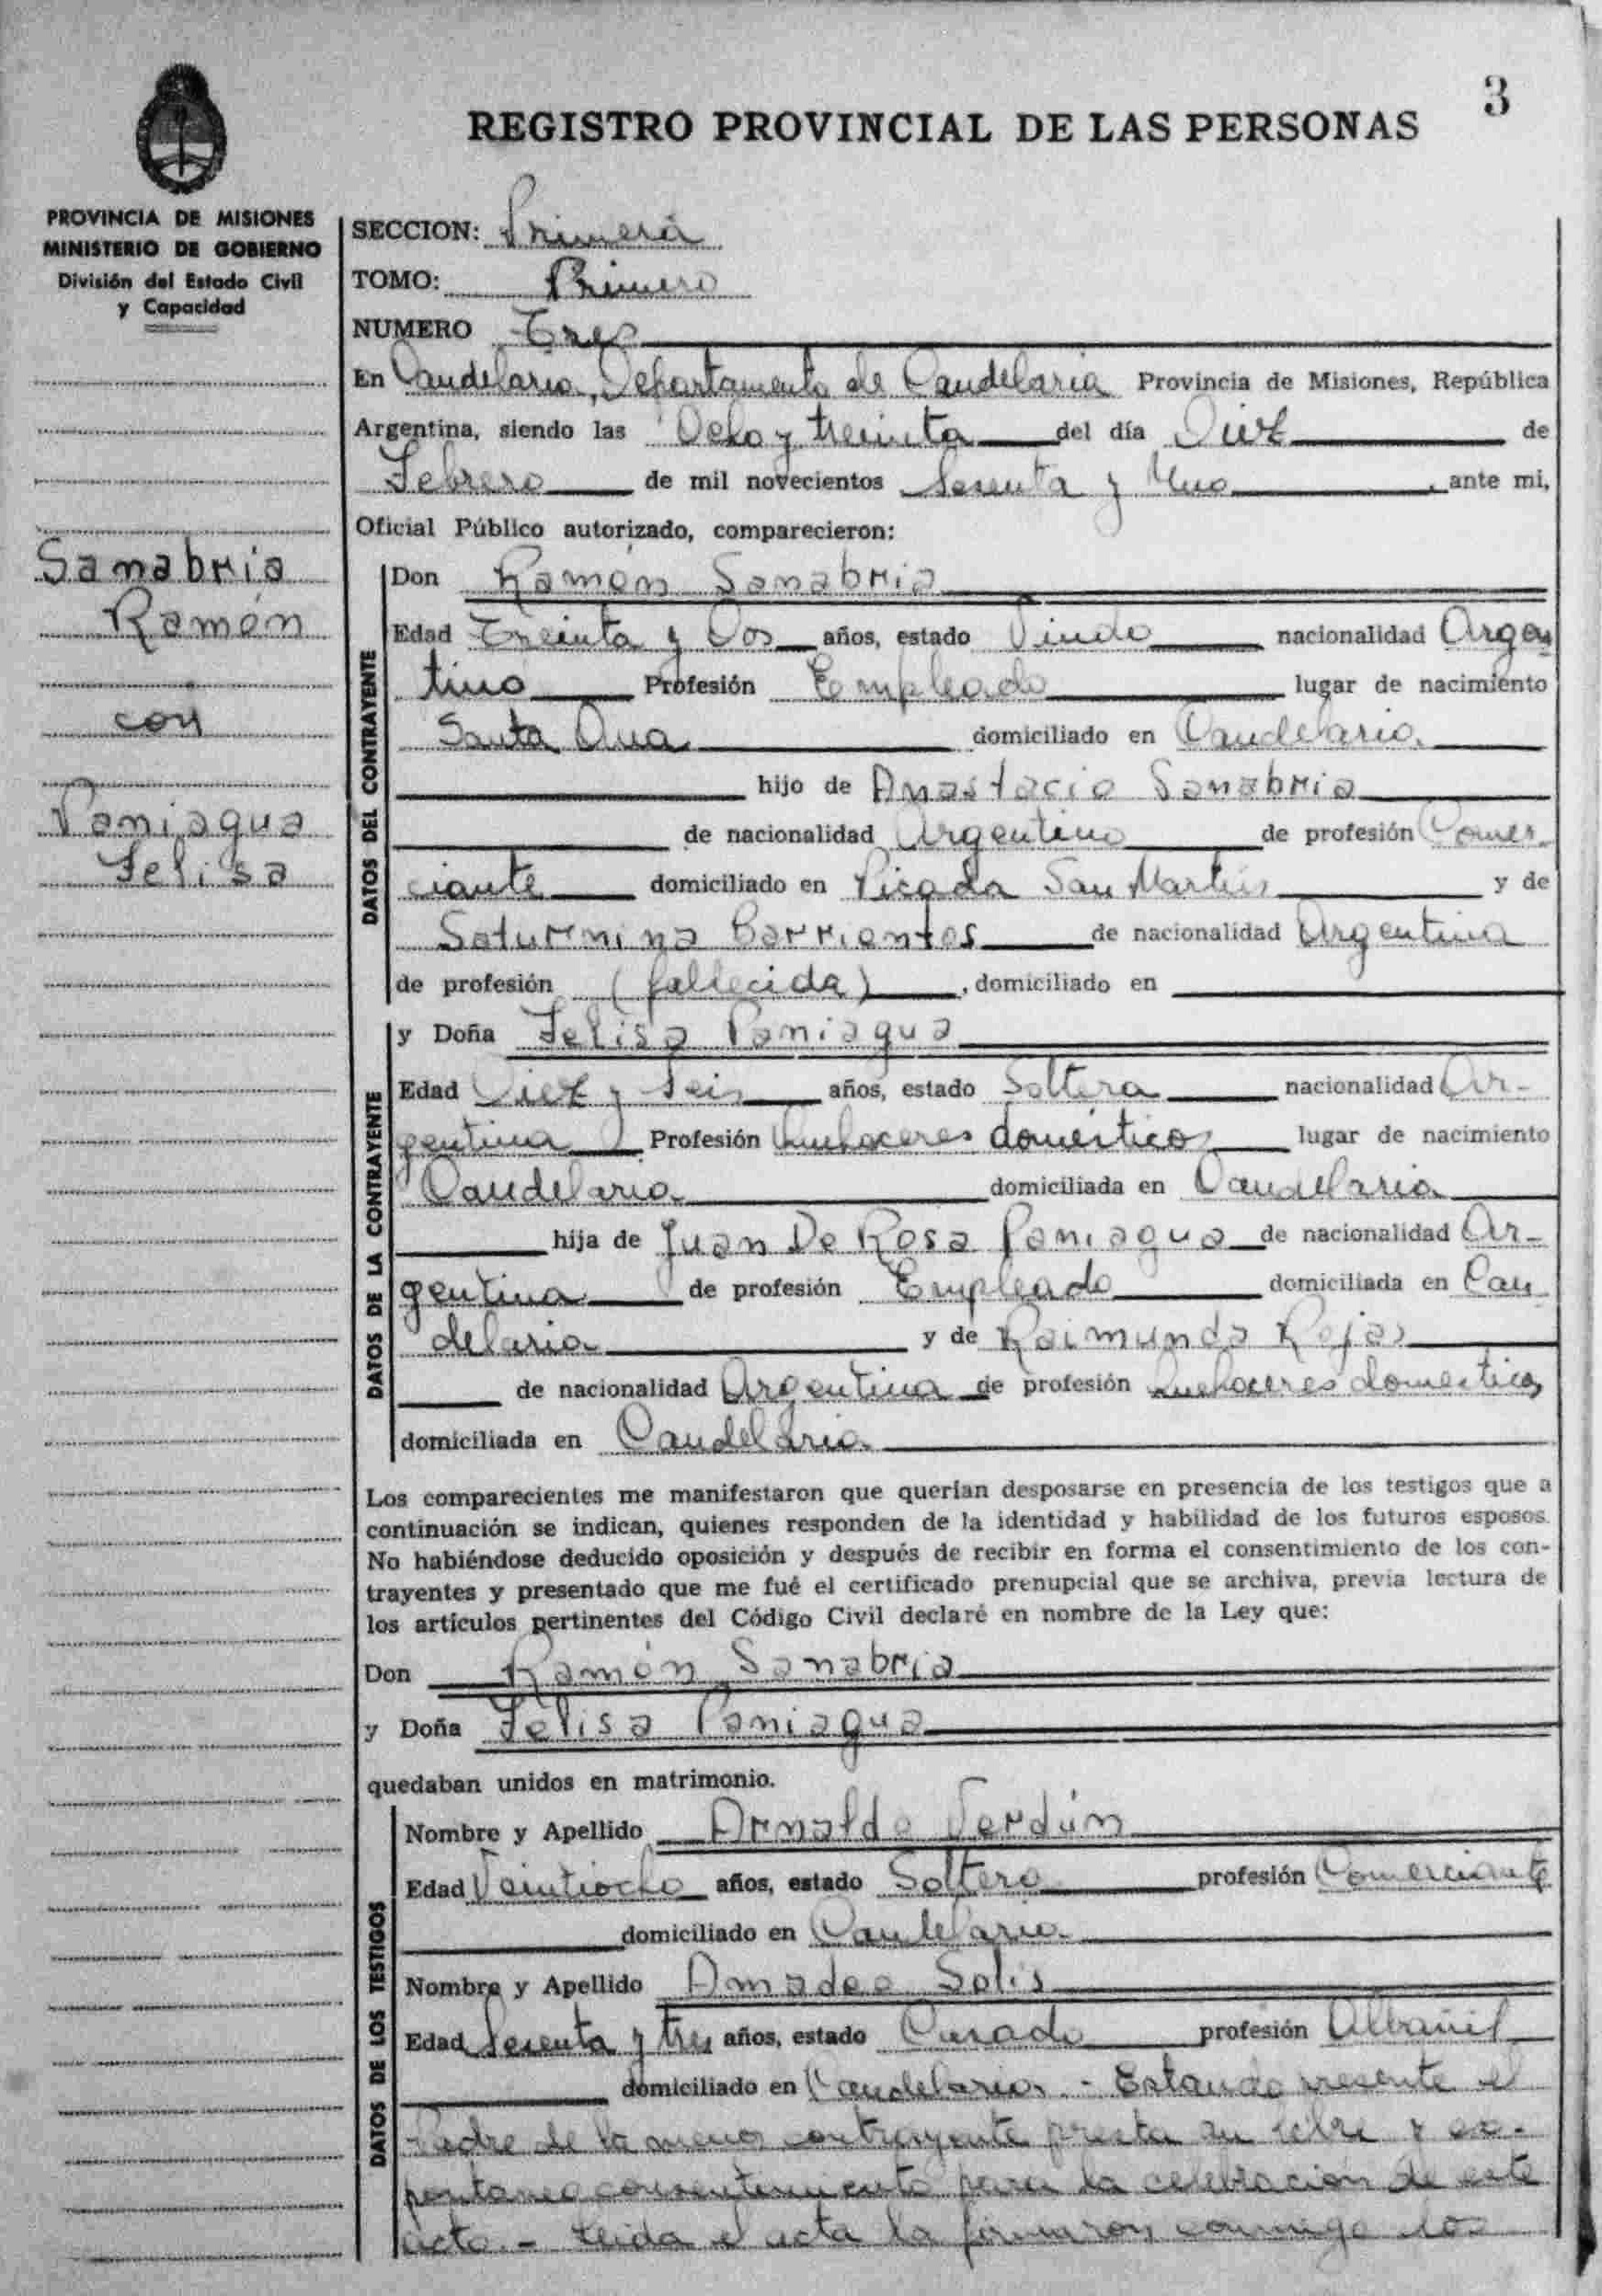 3
REGISTRO PROVINCIAL DE LAS PERSONAS
PROVINCIA DE MISIONES
MINISTERIO DE GOBIERNO
División del Estado Civil
y Capacidad
Sanabria
Ramón
con
Paniagua
Felisa
SECCION: Primera
TOMO: Primero
NUMERO Tres
En Candelaria, Departamento de Candelaria Provincia de Misiones, República
Argentina, siendo las Ocho y treinta del día Diez de
Febrero de mil novecientos Sesenta y Uno, ante mi,
Oficial Público autorizado, comparecieron:
DATOS DEL CONTRAYENTE
Don Ramón Sanabria
Edad Treinta y Dos años, estado Viudo nacionalidad Argen
tino Profesión Empleado lugar de nacimiento
Santa Ana domiciliado en Candelaria
hijo de Anastacio Sanabria
de nacionalidad Argentino de profesión Comer-
ciante domiciliado en Picada San Martín y de
Saturnina Barrientos de nacionalidad Argentina
de profesión (fallecida), domiciliado en
DATOS DE LA CONTRAYENTE
y Doña Felisa Paniagua
Edad Diez y Seis años, estado Soltera nacionalidad Ar-
gentina Profesión Quehaceres domésticos lugar de nacimiento
Candelaria domiciliada en Candelaria
hija de Juan De Rosa Paniagua de nacionalidad Ar-
gentina de profesión Empleado domiciliada en Can
delaria y de Raimunda Rojas
de nacionalidad Argentina de profesión quehaceres domesticos
domiciliada en Candelaria
Los comparecientes me manifestaron que querían desposarse en presencia de los testigos que a
continuación se indican, quienes responden de la identidad y habilidad de los futuros esposos.
No habiéndose deducido oposición y después de recibir en forma el consentimiento de los con-
trayentes y presentado que me fué el certificado prenupcial que se archiva, previa lectura de
los artículos pertinentes del Código Civil declaré en nombre de la Ley que:
Don Ramón Sanabria
y Doña Felisa Paniagua
quedaban unidos en matrimonio.
DATOS DE LOS TESTIGOS
Nombre y Apellido Arnaldo Verdún
Edad Veintiocho años, estado Soltero profesión Comerciante
domiciliado en Candelaria
Nombre y Apellido Amadeo Solis
Edad Sesenta y tres años, estado Casado profesión Albañil
domiciliado en Candelaria. - Estando presente el
Padre de la menor contrayente presta su libre y es-
pontaneo consentimiento para la celebracion de este
acto. - Leida el acta la firmaron conmigo los